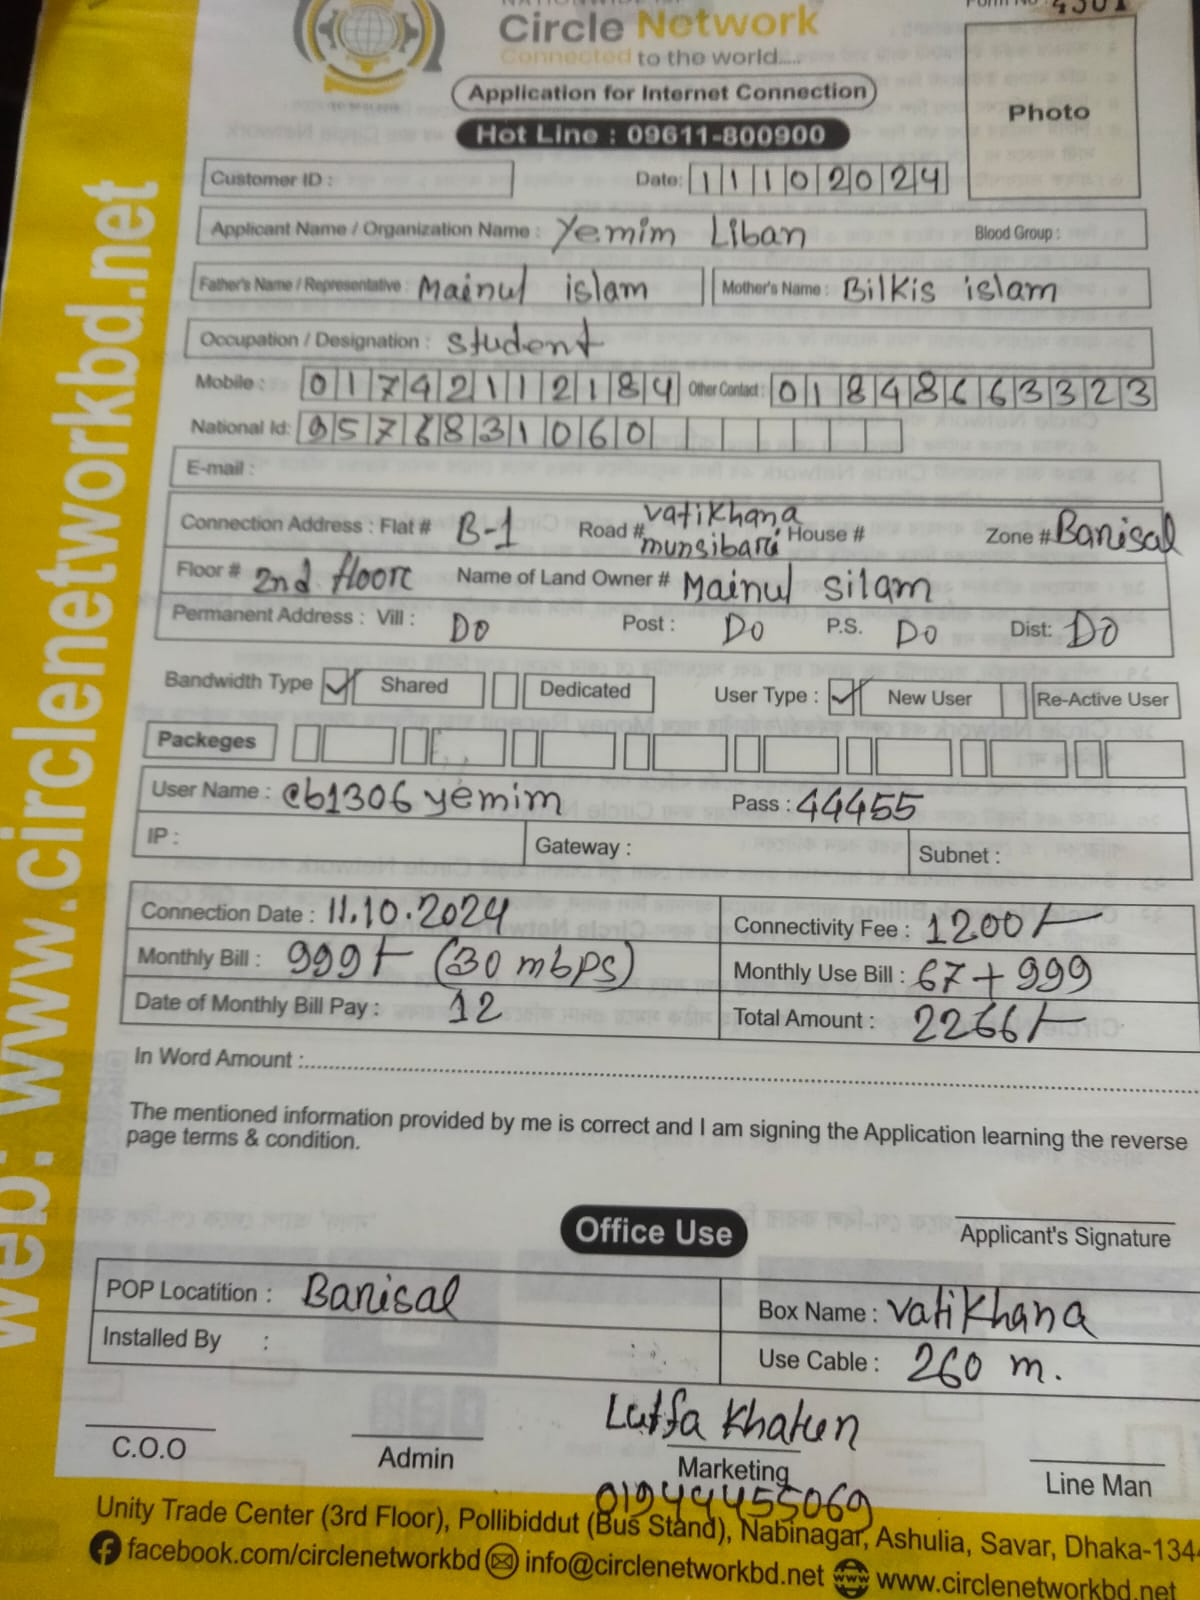 Circle Network
Connected to the world....
Form No : 4301
Application for Internet Connection
Hot Line : 09611-800900
Photo
Customer ID :
Date: 11102024
Applicant Name / Organization Name : Yemim Liban Blood Group :
Father's Name / Representative : Mainul islam Mother's Name : Bilkis islam
Occupation / Designation : Student
Mobile : 01742112184 Other Contact : 01848663323
National Id: 9576831060
E-mail :
Connection Address : Flat # B-1 Road # vatikhana munsibari House # Zone # Barisal
Floor # 2nd floor Name of Land Owner # Mainul silam
Permanent Address : Vill : DO Post : DO P.S. DO Dist: DO
Bandwidth Type ✓ Shared Dedicated User Type : ✓ New User Re-Active User
Packeges
User Name : cb1306yemim Pass : 44455
IP : Gateway : Subnet :
Connection Date : 11.10.2024 Connectivity Fee : 1200/-
Monthly Bill : 999/- (30 mbps) Monthly Use Bill : 67 + 999
Date of Monthly Bill Pay : 12 Total Amount : 2266/-
In Word Amount :
The mentioned information provided by me is correct and I am signing the Application learning the reverse
page terms & condition.
Applicant's Signature
Office Use
POP Locatition : Barisal Box Name : vatikhana
Installed By : Use Cable : 260 m.
Lutfa Khatun
C.O.O Admin Marketing Line Man
01944455069
Unity Trade Center (3rd Floor), Pollibiddut (Bus Stand), Nabinagar, Ashulia, Savar, Dhaka-1344
facebook.com/circlenetworkbd info@circlenetworkbd.net www.circlenetworkbd.net
web: www.circlenetworkbd.net